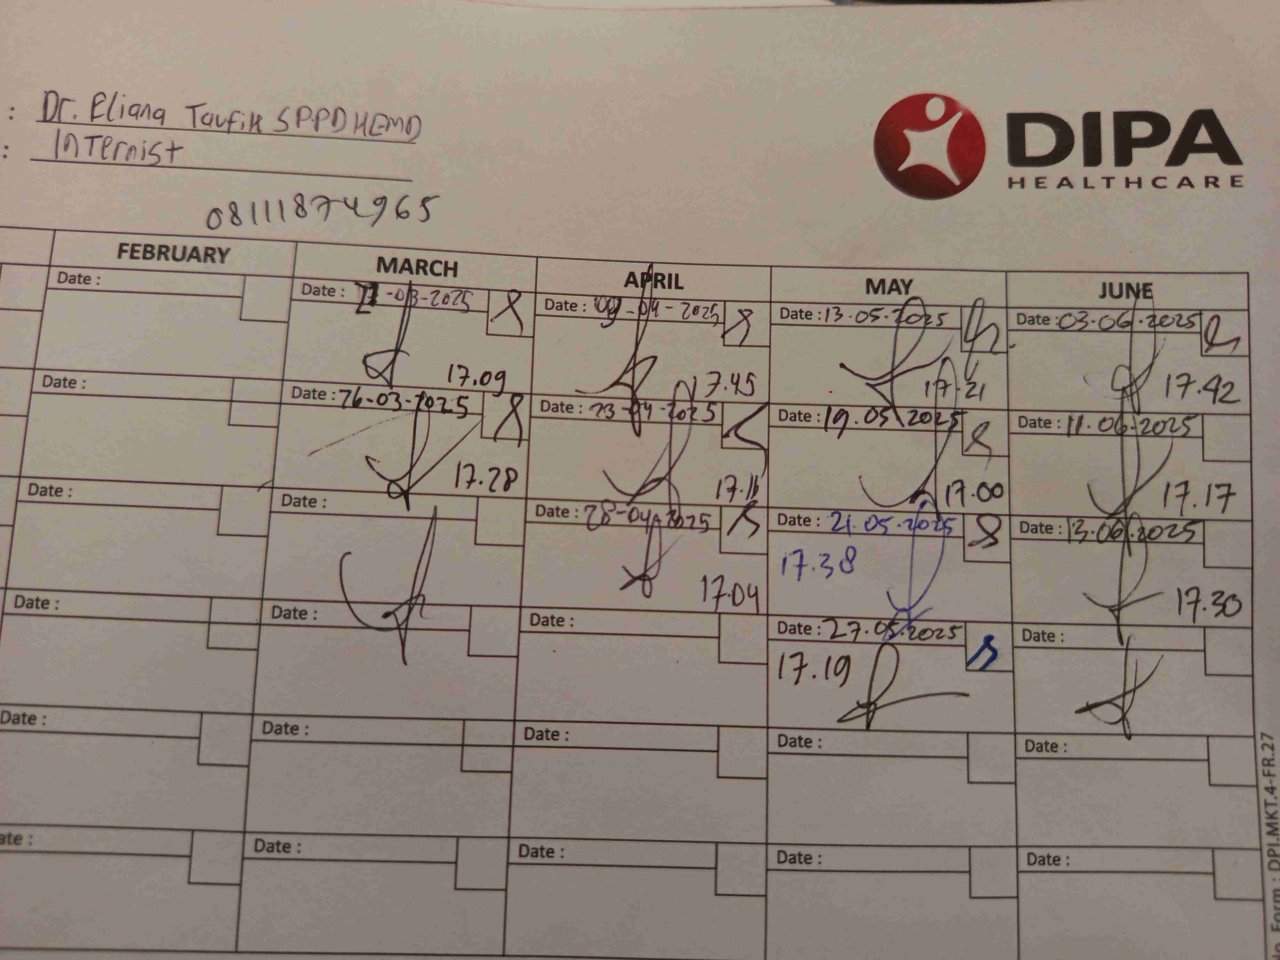 : Dr. Eliana Taufik SP.PD HEMD
: Internist
08111874965
DIPA
HEALTHCARE
FEBRUARY MARCH APRIL MAY JUNE
Date : Date : -03-2025 Date : 09-04-2025 Date : 13.05.2025 Date : 03.06.2025
17.09 17.45 17.21 17.42
Date : Date : 26-03-2025 Date : 23-04-2025 Date : 19.05.2025 Date : 11.06.2025
17.28 17.11 17.00 17.17
Date : Date : Date : 28-04-2025 Date : 21.05.2025 Date : 13.06.2025
17.04 17.38 17.30
Date : Date : Date : Date : 27.05.2025 Date :
17.19
Date : Date : Date : Date : Date :
ate : Date : Date : Date : Date :
Form : DPI.MKT.4-FR.27